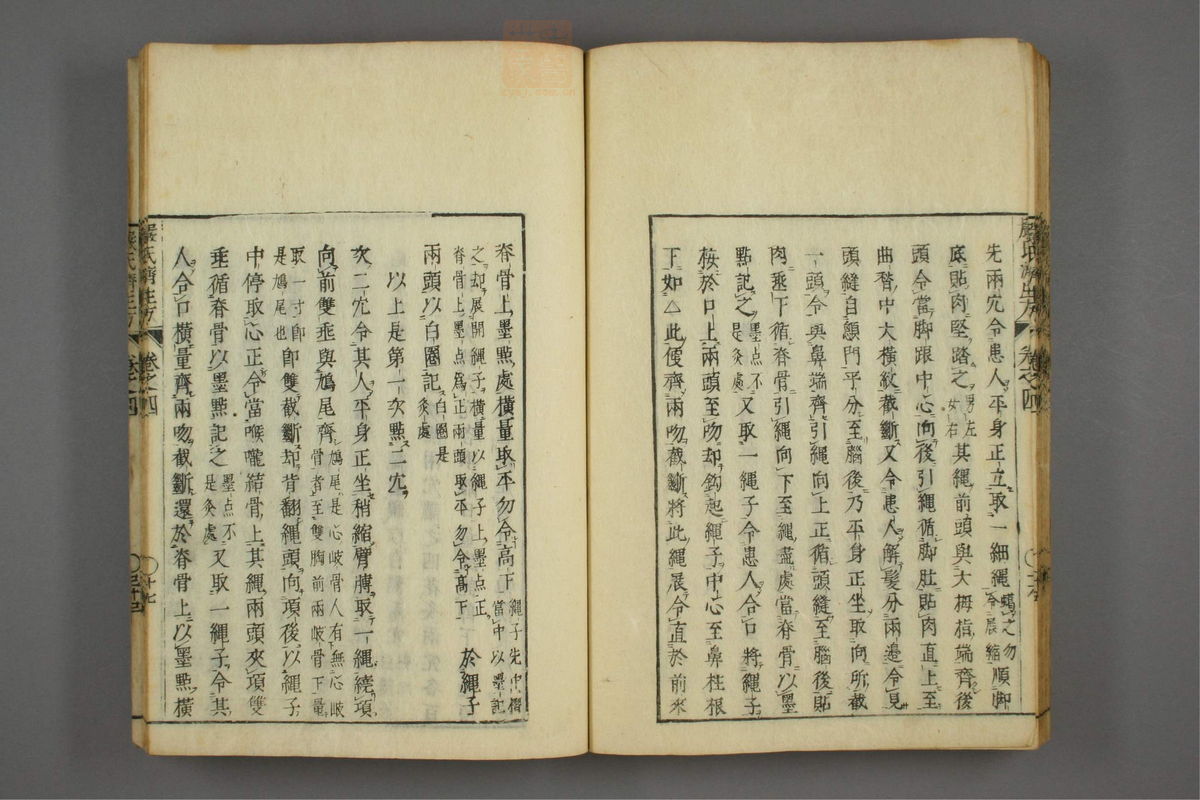 先兩穴令患人平身正立取一細繩蠟之勿令展縮順脚
底貼肉堅踏之男左女右其繩前頭與大拇指端齊後
頭令當脚跟中心向後引繩循脚肚貼肉直上至
曲䐐中大橫紋截斷又令患人解髮分兩邊令見
頭縫自顖門平分至腦後乃平身正坐取向所截
一頭令與鼻端齊引繩向上正循頭縫至腦後貼
肉垂下循脊骨引繩向下至繩盡處當脊骨以墨
點記之墨点不是灸處又取一繩子令患人合口將繩子
按於口上兩頭至吻却鈎起繩子中心至鼻柱根
下如△此便齊兩吻截斷將此繩展令直於前來
嚴氏濟生方
卷之四
脊骨上墨點處橫量取平勿令高下繩子先中摺當中以墨記
之却展開繩子橫量以繩子上墨点正脊骨上墨点爲正兩頭取平勿令高下於繩子
兩頭以白圈記白圈是灸處
以上是第一次點二穴
次二穴令其人平身正坐稍縮臂膊取一繩繞項
向前雙垂與鳩尾齊鳩尾是心岐骨人有無心岐骨者至雙胸前兩岐骨下量
取一寸卽是鳩尾也卽雙截斷却背翻繩頭向項後以繩子
中停取心正令當喉嚨結骨上其繩兩頭夾項雙
垂循脊骨以墨點記之墨点不是灸處又取一繩子令其
人合口橫量齊兩吻截斷還於脊骨上以墨點橫
嚴氏濟生方
卷之四